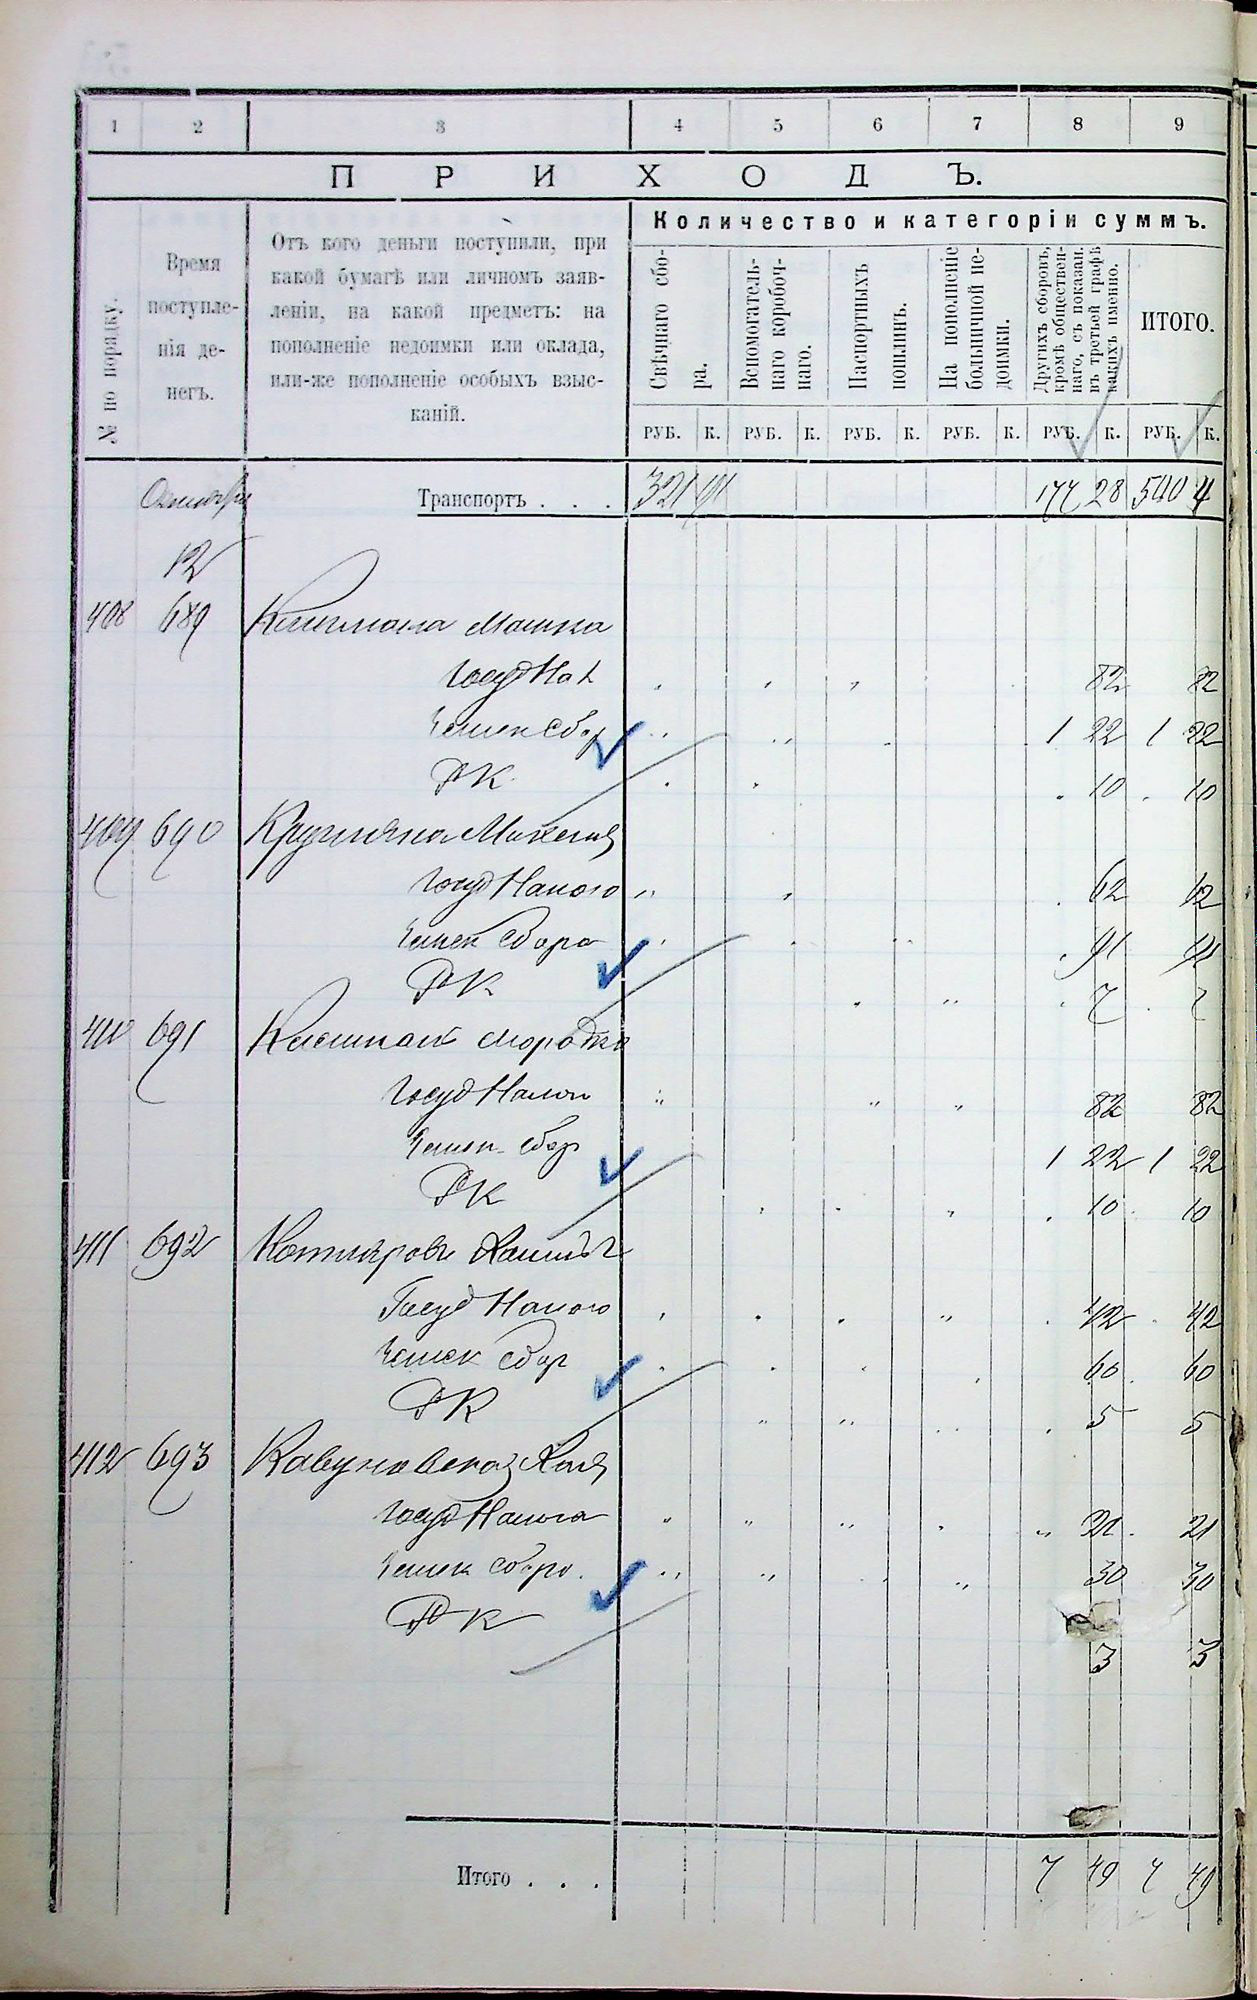 1 2 3 4 5 6 7 8 9
ПРИХОДЪ.
№ по порядку.
Время поступле-
нія де-
негъ.
Отъ кого деньги поступили, при
какой бумагѣ или личномъ заяв-
леніи, на какой предметъ: на
пополненіе недоимки или оклада,
или-же пополненіе особыхъ взыс-
каній.
Количество и категоріи суммъ.
Свѣчнаго сбо-
ра.
Вспомогатель-
наго коробоч-
наго.
Паспортныхъ
пошлинъ.
На пополненіе
больничной не-
доимки.
Другихъ сборовъ,
кромѣ обществен-
наго, съ показан.
въ третьей графѣ
какихъ именно.
ИТОГО.
РУБ. К. РУБ. К. РУБ. К. РУБ. К. РУБ. К. РУБ. К.
Октября Транспортъ . . . 321 91 177 28 540 4
12
408 689 Машка
Госуд Нал 82 82
Земск Сбор 1 22 1 22
РК 10 10
409 690
Госуд Налога 62 62
Земск Сбора 91 91
РК 7 7
410 691 Мордка
Госуд Налог 82 82
Земск Сбор 1 22 1 22
РК 10 10
411 692 Котляровъ
Госуд Налога 42 42
Земск Сбор 60 60
РК 5 5
412 693
Госуд Налога 21 21
Земск Сбора. 30 30
РК
3 3
Итого . . . 7 49 7 49